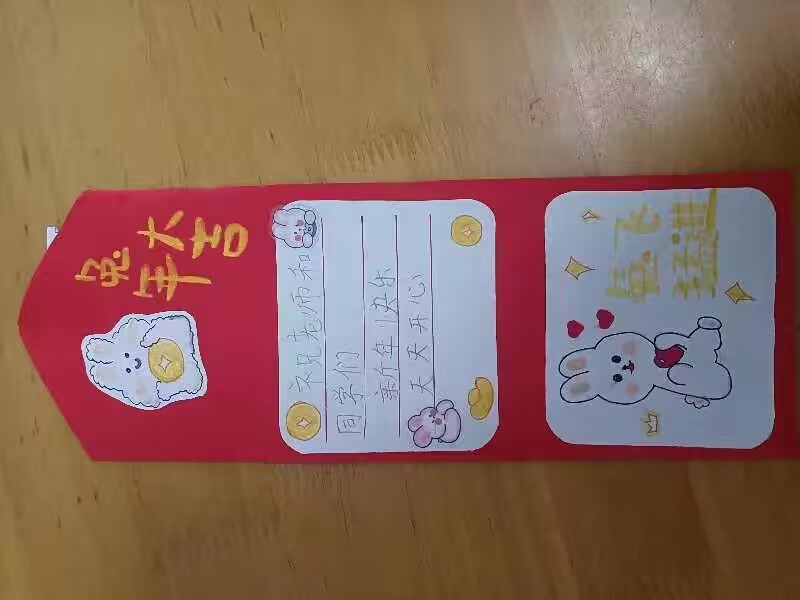 兔年
大吉
祝老师和
同学们
新年快乐
天天开心
兔飞
猛进